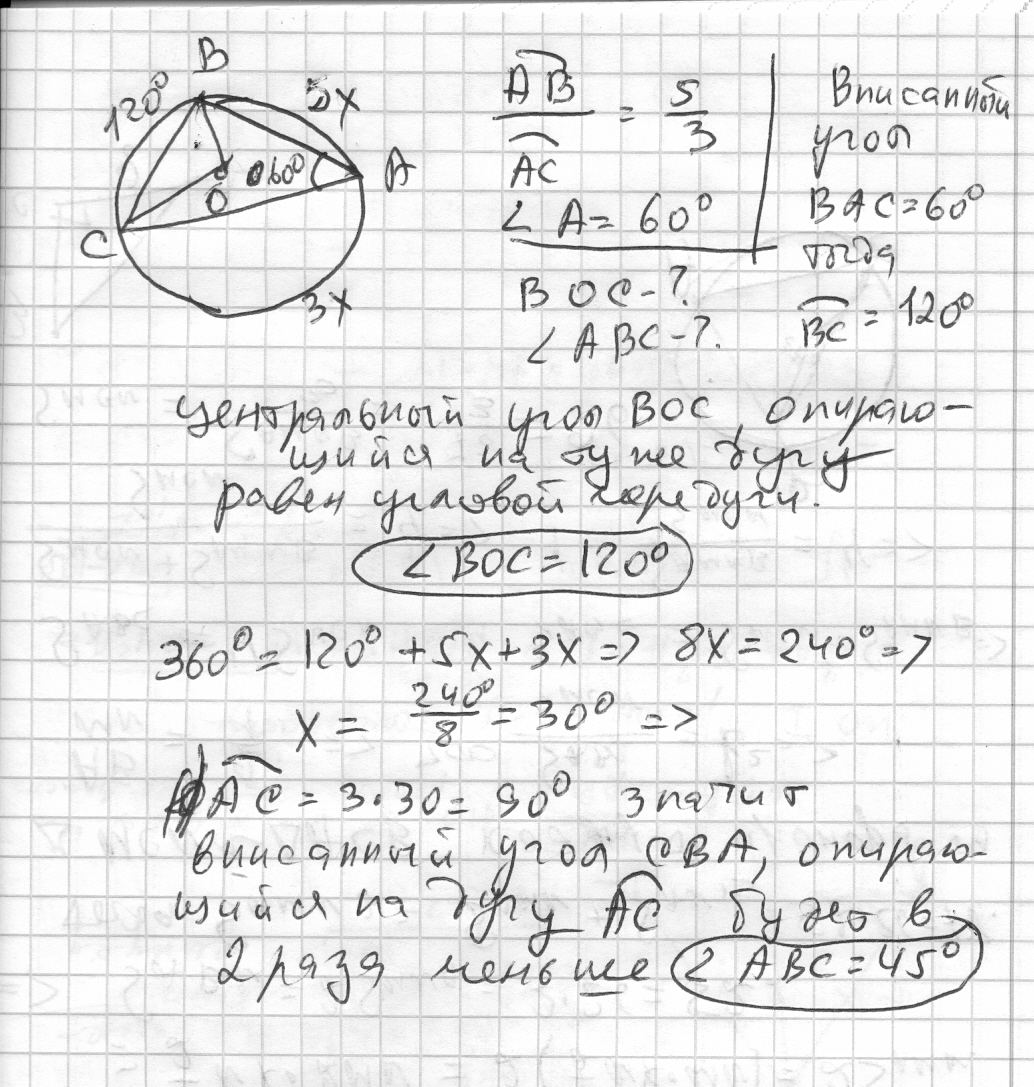 B
120°
5x
60°
A
O
C
3x
AB / AC = 5/3
∠A = 60°
BOC - ?
∠ABC - ?
Вписанный
угол
BAC = 60°
тогда
BC = 120°
Центральный угол BOC, опираю-
щийся на ту же дугу
равен угловой мере дуги.
∠BOC = 120°
360° = 120° + 5x + 3x => 8x = 240° =>
x = 240°/8 = 30° =>
AC = 3·30 = 90° значит
вписанный угол CBA, опираю-
щийся на дугу AC будет в
2 раза меньше ∠ABC = 45°